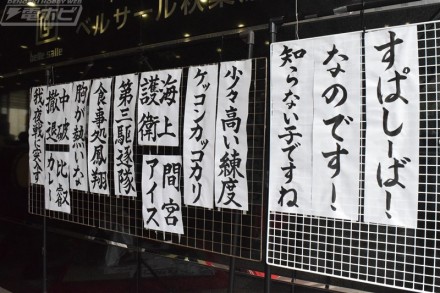 電ホビ
ベルサール秋葉
すぱしーば！
なのです！
知らない子ですね
少々高い練度
ケッコンカッコカリ
海上護衛
間宮アイス
第三駆逐隊
食事処鳳翔
胸が熱いな
中破撤退
比叡カレー
我、夜戦に突入す